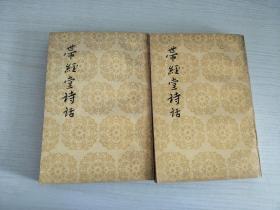 帶經堂詩話
帶經堂詩話